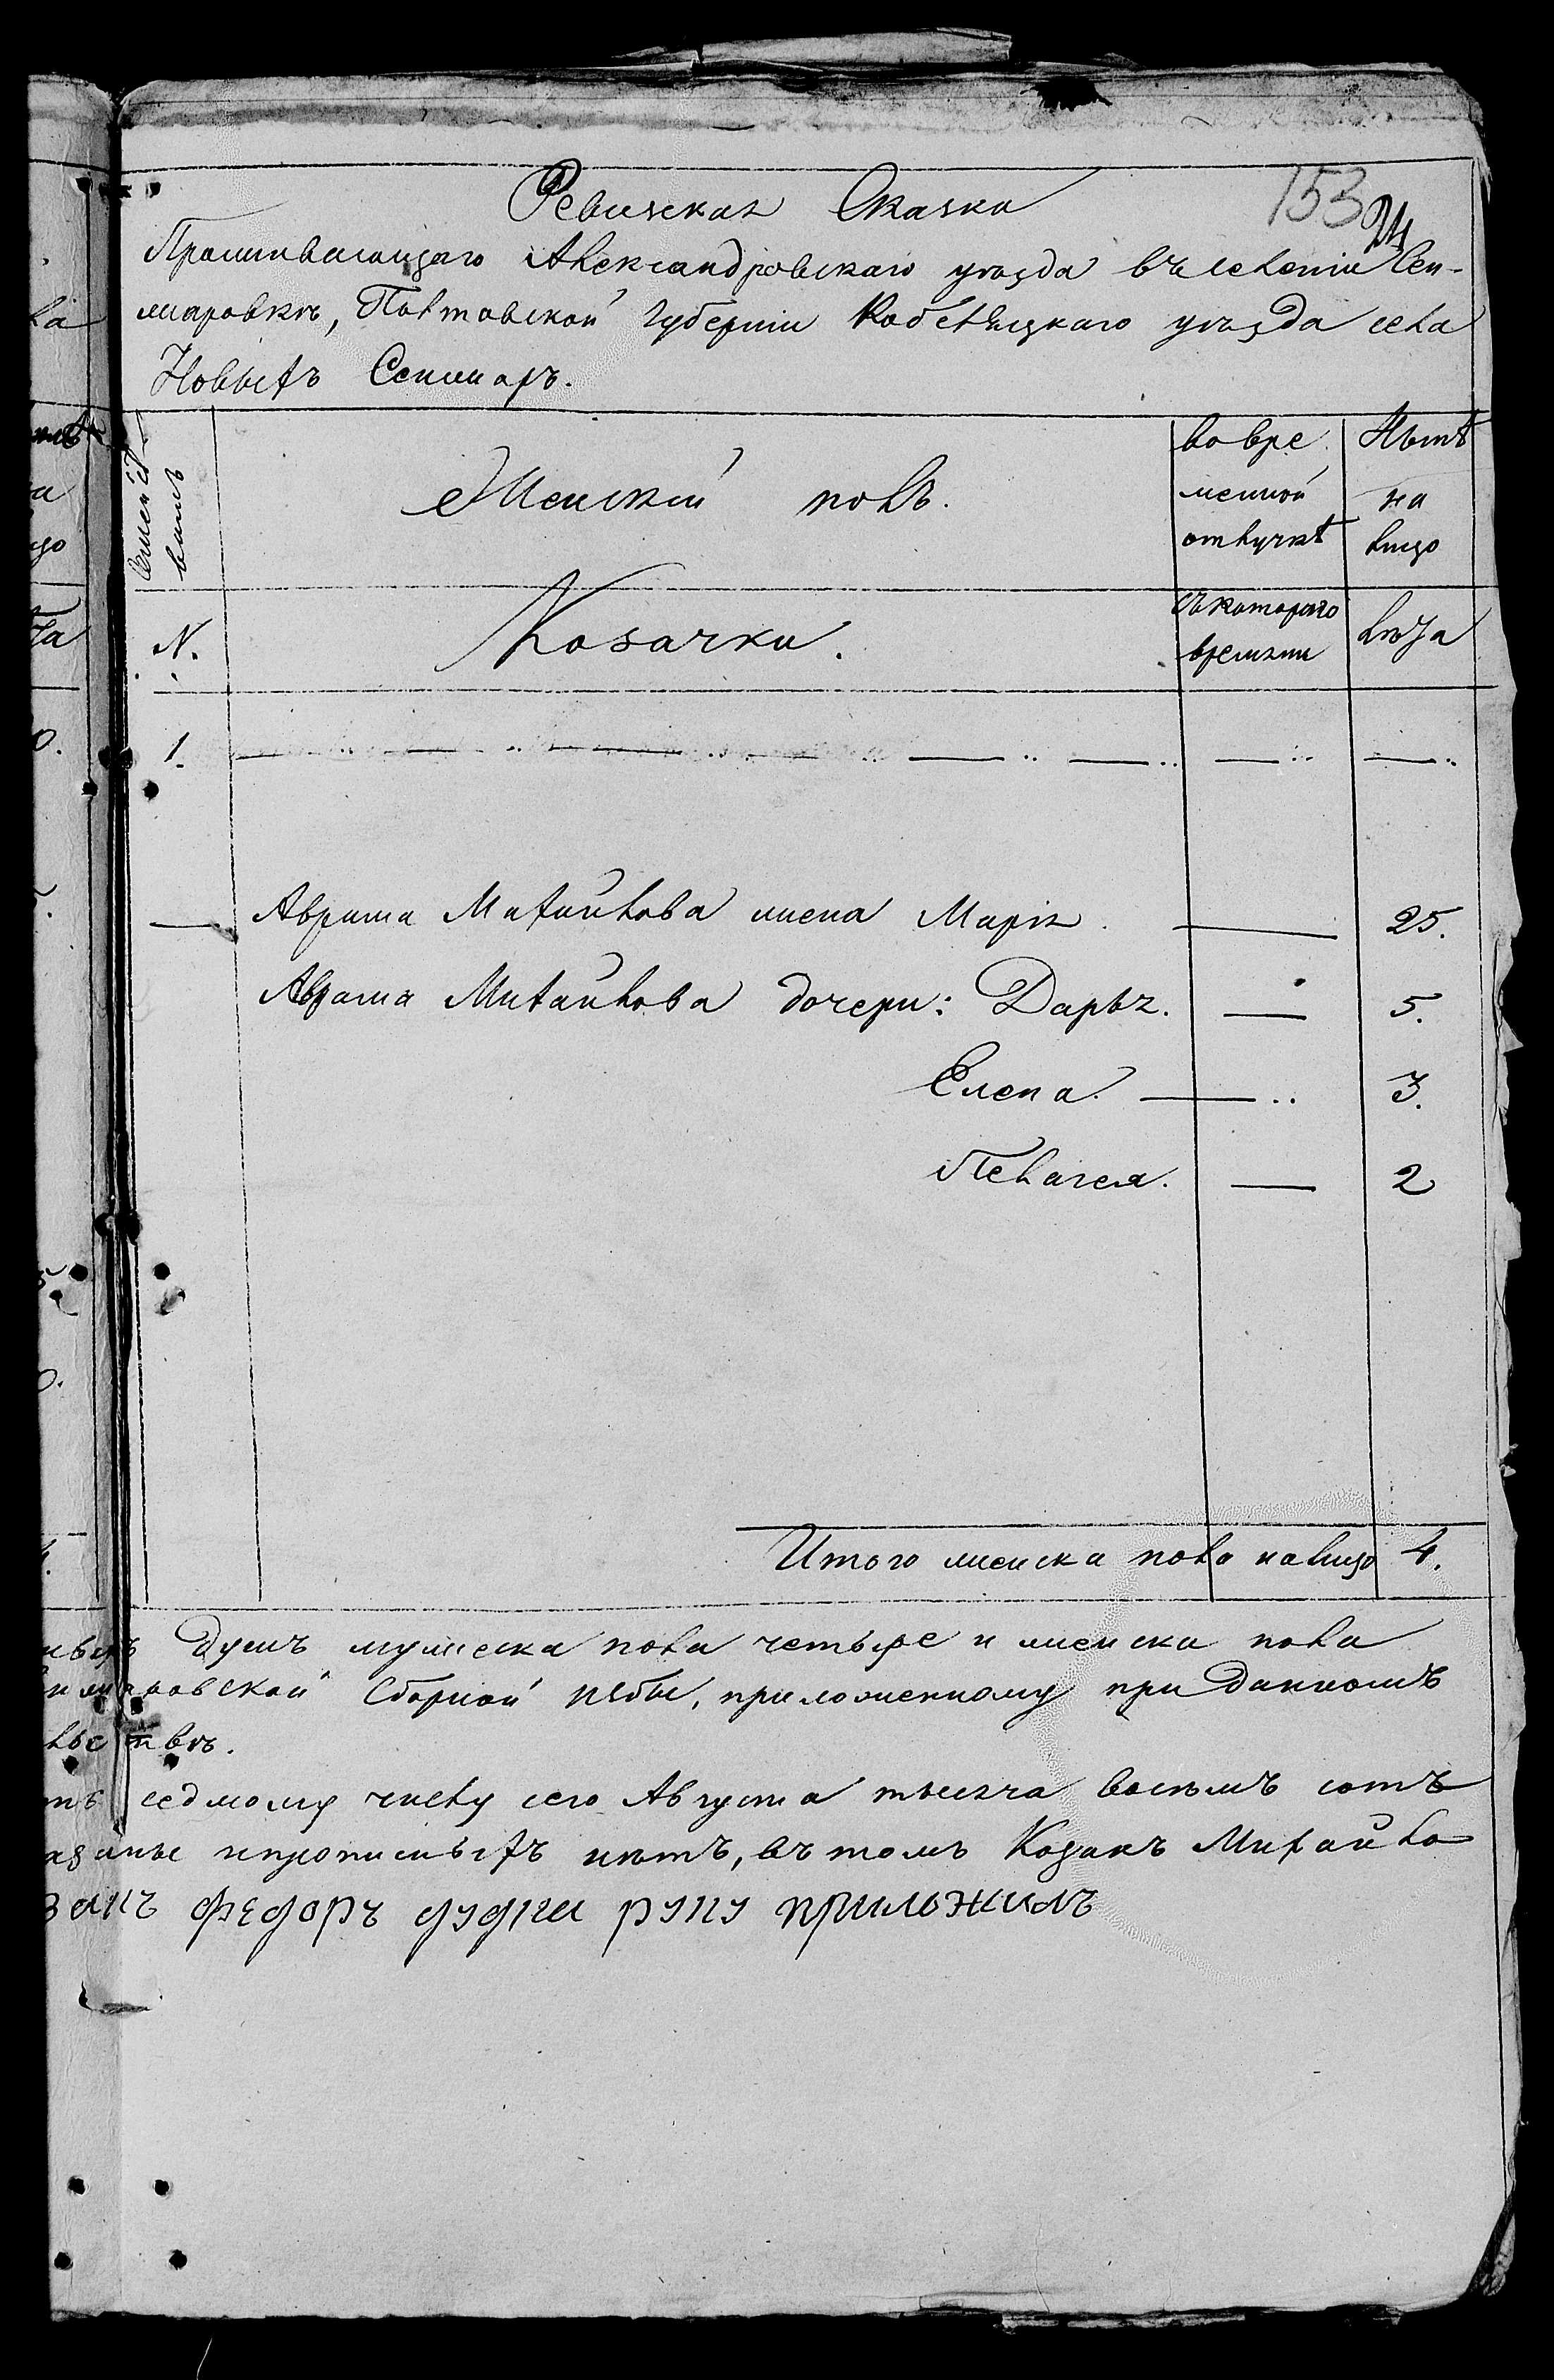 Ревизская Сказка
153
Проживающаго Александровскаго уезда въ селеніи Сен-
жаровкѣ, Полтавской Губерніи Кобеляцкаго уѣзда села
Новыхъ Сенжаръ.
Женскій полъ.
во вре
менной
отлучкѣ
Нынѣ
на
лицо
N.
Козачки.
съ котораго
времени
лѣта
1.
Аврама Михайлова жена Марія. 25.
Аврама Михайлова дочери: Дарья. 5.
Елена. 3.
Пелагея. 2
Итого женска пола налицо 4.
душъ мужеска пола четыре и женска пола
Сборной избы, приложенному при данномъ
седмому числу сего Августа тысяча восемь сотъ
и прописныхъ нѣтъ, въ томъ Козакъ Михайло
федоръ дудка руку приложилъ